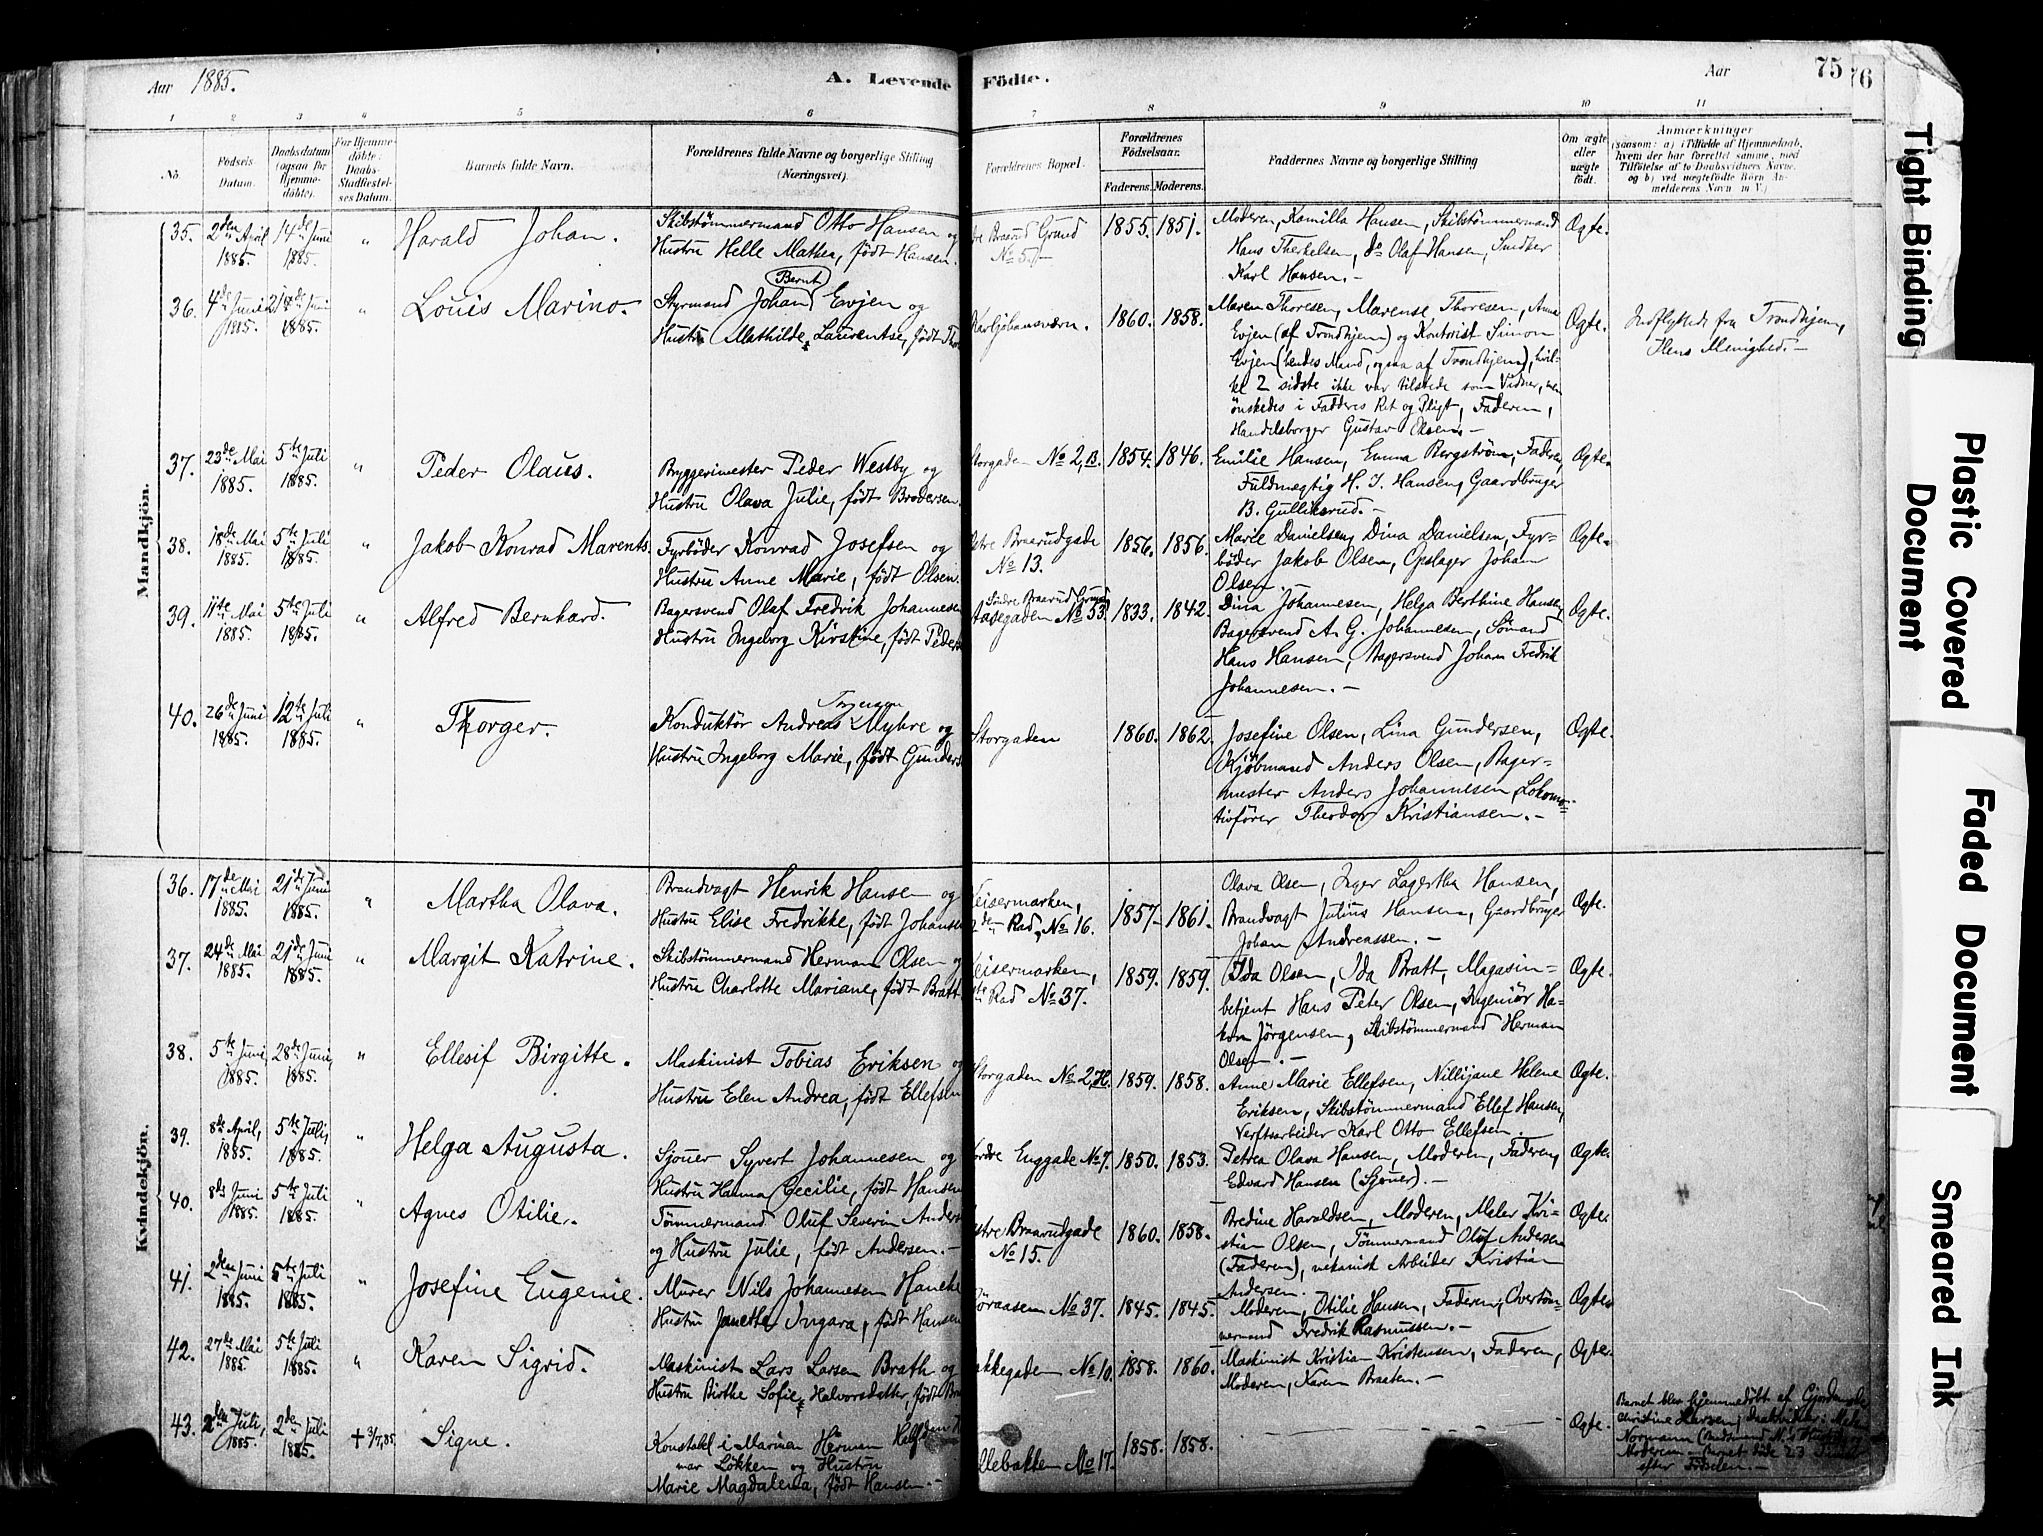 Aar 1885.
A. Levende Födte.
Aar
75
76
1 2 3 4 5 6 7 8 9 10 11
No.
Födsels Datum.
Daabsdatum (ogsaa for Hjemmedöbte).
For Hjemmedöbte: Daabs-Stadfæstelses Datum.
Barnets fulde Navn.
Forældrenes fulde Navne og borgerlige Stilling (Næringsvei).
Forældrenes Bopæl.
Forældrenes Födselsaar.
Faderens. Moderens.
Faddernes Navne og borgerlige Stilling
Om ægte eller uægte födt.
Anmærkninger
(saasom: a) i Tilfælde af Hjemmedaab, hvem der har forrettet samme, med Tilföielse af to Daabsvidners Navne, og b) ved uægtefödte Börn Anmelderens Navn m. V.)
Mandkjön.
35. 2den April 1885. 14de Juni 1885. " Harald Johan.
Skibstömmermand Otto Hansen og
Hustru Helle Mathea, født Hansen.
Braarud Grund
No 5.
1855. 1851.
Moderen, Kamilla Hansen, Skibstömmermand
Hans Therkelsen, do Olaf Hansen, Snedker
Karl Hansen.-
Ægte.
36. 4de Juni 1885. 21de Juni 1885. " Louis Marino.
Bernt
Styrmand Johan Evjen og
Hustru Mathilde Laurentse, født
Karljohansværn.
1860. 1858.
Maren Thoresen, Marense Thoresen, Anna
Evjen (af Trondhjem) og Kontorist Simon
Evjen (hendes Mand, ogsaa af Trondhjem), hvil-
ke 2 sidste ikke var tilstede som Vidner, men
ønskedes i Fadderes Ret og Pligt, Faderen,
Handelsborger Gustav Olsen.-
Ægte.
Indflyttede fra Trondhjem,
Ilens Menighed.-
37. 23de Mai 1885. 5te Juli 1885. " Peder Olaus.
Bryggerimester Peder Westby og
Hustru Olava Julie, født Brodersen
Storgaden No 2, B.
1854. 1846.
Emilie Hansen, Emma Bergström, Faderen,
Fuldmægtig H. J. Hansen, Gaardbruger
B. Gulliksrud.-
Ægte.
38. 18de Mai 1885. 5te Juli 1885. " Jakob Konrad Marents.
Fyrböder Konrad Josefsen og
Hustru Anne Marie, født Olsen.
stre Braarudgade
No 13.
1856. 1856.
Marie Danielsen, Dina Danielsen, Fyr-
böder Jakob Olsen, Opslager Johan
Olsen.
Ægte.
39. 11te Mai 1885. 5te Juli 1885. " Alfred Bernhard.
Bagersvend Olaf Fredrik Johannesen
Hustru Ingeborg Kirstine, født Peders
Söndre Braarud Grund
No 53.
1833. 1842.
Dina Johannesen, Helga Berthine Hansen,
Bagersvend A. G. Johannesen, Sömand
Hans Hansen, Bagersvend Johan Fredrik
Johannesen.-
Ægte.
40. 26de Juni 1885. 12te Juli 1885. " Thorger.
Konduktör Andreas Myhre og
Hustru Ingeborg Marie, født Gunders
Storgaden
1860. 1862.
Josefine Olsen, Lina Gundersen,
Kjöbmand Anders Olsen, Bager-
mester Anders Johannesen, Lokomo-
tivförer Theodor Kristiansen.-
Ægte.
Kvindekjön.
36. 17de Mai 1885. 21de Juni 1885. " Martha Olava.
Brandvagt Henrik Hansen og
Hustru Elise Fredrikke, født Johansen
Keisermarken,
2den Rad, No 16.
1857. 1861.
Olava Olsen, Inger Lagertha Hansen,
Brandvagt Julius Hansen, Gaardbruger
Johan Andreassen.-
Ægte.
37. 24de Mai 1885. 21de Juni 1885. " Margit Katrine.
Skibstömmermand Herman Olsen og
Hustru Charlotte Mariane, født Bratt
Keisermarken,
Rad No 37.
1859. 1859.
Ida Olsen, Ida Bratt, Magasin-
betjent Hans Peter Olsen, Ingeniör Ha-
kon Jörgensen, Skibstömmermand Herman
Olsen.-
Ægte.
38. 5te Juni 1885. 28de Juni 1885. " Ellesif Birgitte.
Maskinist Tobias Eriksen og
Hustru Elen Andrea, født Ellefsen
Storgaden No 2, H.
1859. 1858.
Anne Marie Ellefsen, Nillijane Helene
Eriksen, Skibstömmermand Ellef Hansen,
Verftsarbeider Karl Otto Ellefsen.
Ægte.
39. 8de April, 1885. 5te Juli, 1885. " Helga Augusta.
Sjouer Syvert Johannesen og
Hustru Hanna Cecilie, født Hansen
Nordre Enggade No 7.
1850. 1853.
Petrea Olava Hansen, Moderen, Faderen,
Edvard Hansen (Sjouer).-
Ægte.
40. 8de Juni 1885. 5te Juli 1885. " Agnes Otilie.
Tömmermand Oluf Severin Anders
og Hustru Julie, født Andersen.-
stre Braarudgade
No 15.
1860. 1858.
Bredine Haraldsen, Moderen, Maler Kri-
stian Olsen, Tömmermand Oluf Andersen
(Faderen), mekanisk Arbeider Kristian
Andersen.
Ægte.
41. 2den Juni 1885. 5te Juli 1885. " Josefine Eugenie.
Murer Nils Johannesen
Hustru Janette Ingara, født Hansen
No 37.
1845. 1845.
Moderen, Otilie Hansen, Faderen, Overtöm-
mermand Fredrik Rasmussen.-
Ægte.
42. 27de Mai 1885. 5te Juli 1885. " Karen Sigrid.
Maskinist Lars Larsen Brath og
Hustru Birthe Sofie Halvorsdatter, født
Bakkegaden No 10.
1858. 1860.
Maskinist Kristian Kristensen, Faderen,
Moderen, Karen Braaten.-
Ægte.
43. 2den Juli, 1885. 2den Juli 1885. + 3/7,85. Signe.
Konstabel i Marinen Herman
Løkken og Hustru
Marie Magdalena, født Hansen.-
llebakken No 17.
1858. 1858.
Ægte.
Barnet blev hjemmedöbt af
Christine Hansen,
Normann
Moderen - Barnet döde 23
efter Födselen.-
Tight Binding
Plastic Covered Document
Faded Document
Smeared Ink